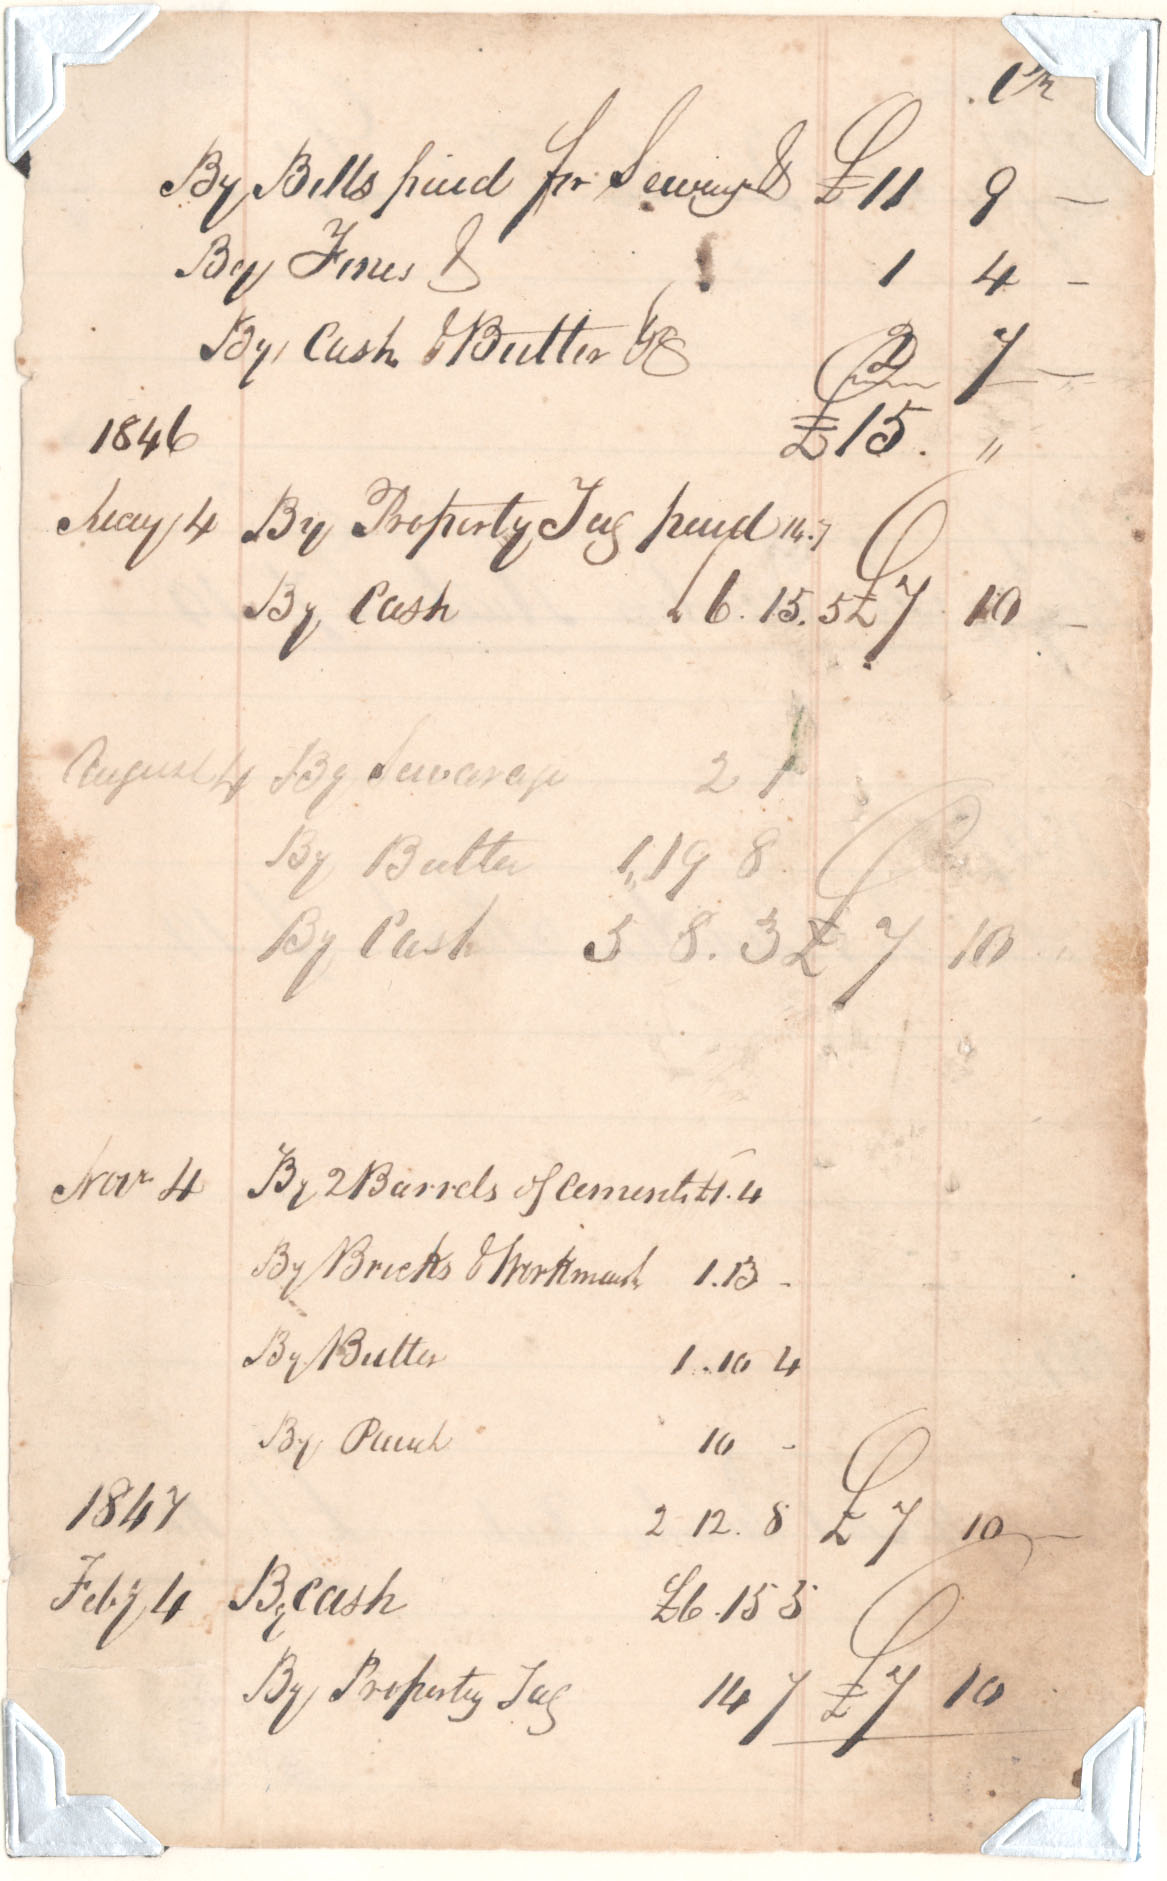 Cr
By Bills paid for Sewerage & £11 9 —
By Fines & 1 4 -
By Cash & Butter && 2 7 —
1846 £15. "
May 4 By Property Tax paid 14.7
By Cash " 6. 15. 5 £7 10 -
August 4 By Sewarage 2 1
By Butter 1,, 19 8
By Cash 5 8. 3 £7 10
Nov 4 By 2 Barrels of Cement £1.4
By Bricks & Workmans 1.13 -
By Butter 1.10 4
By 10 -
1847 2 12. 8 £7 10 —
Feby 4 By Cash £6.15 5
By Property Tax 14 7 £7 10